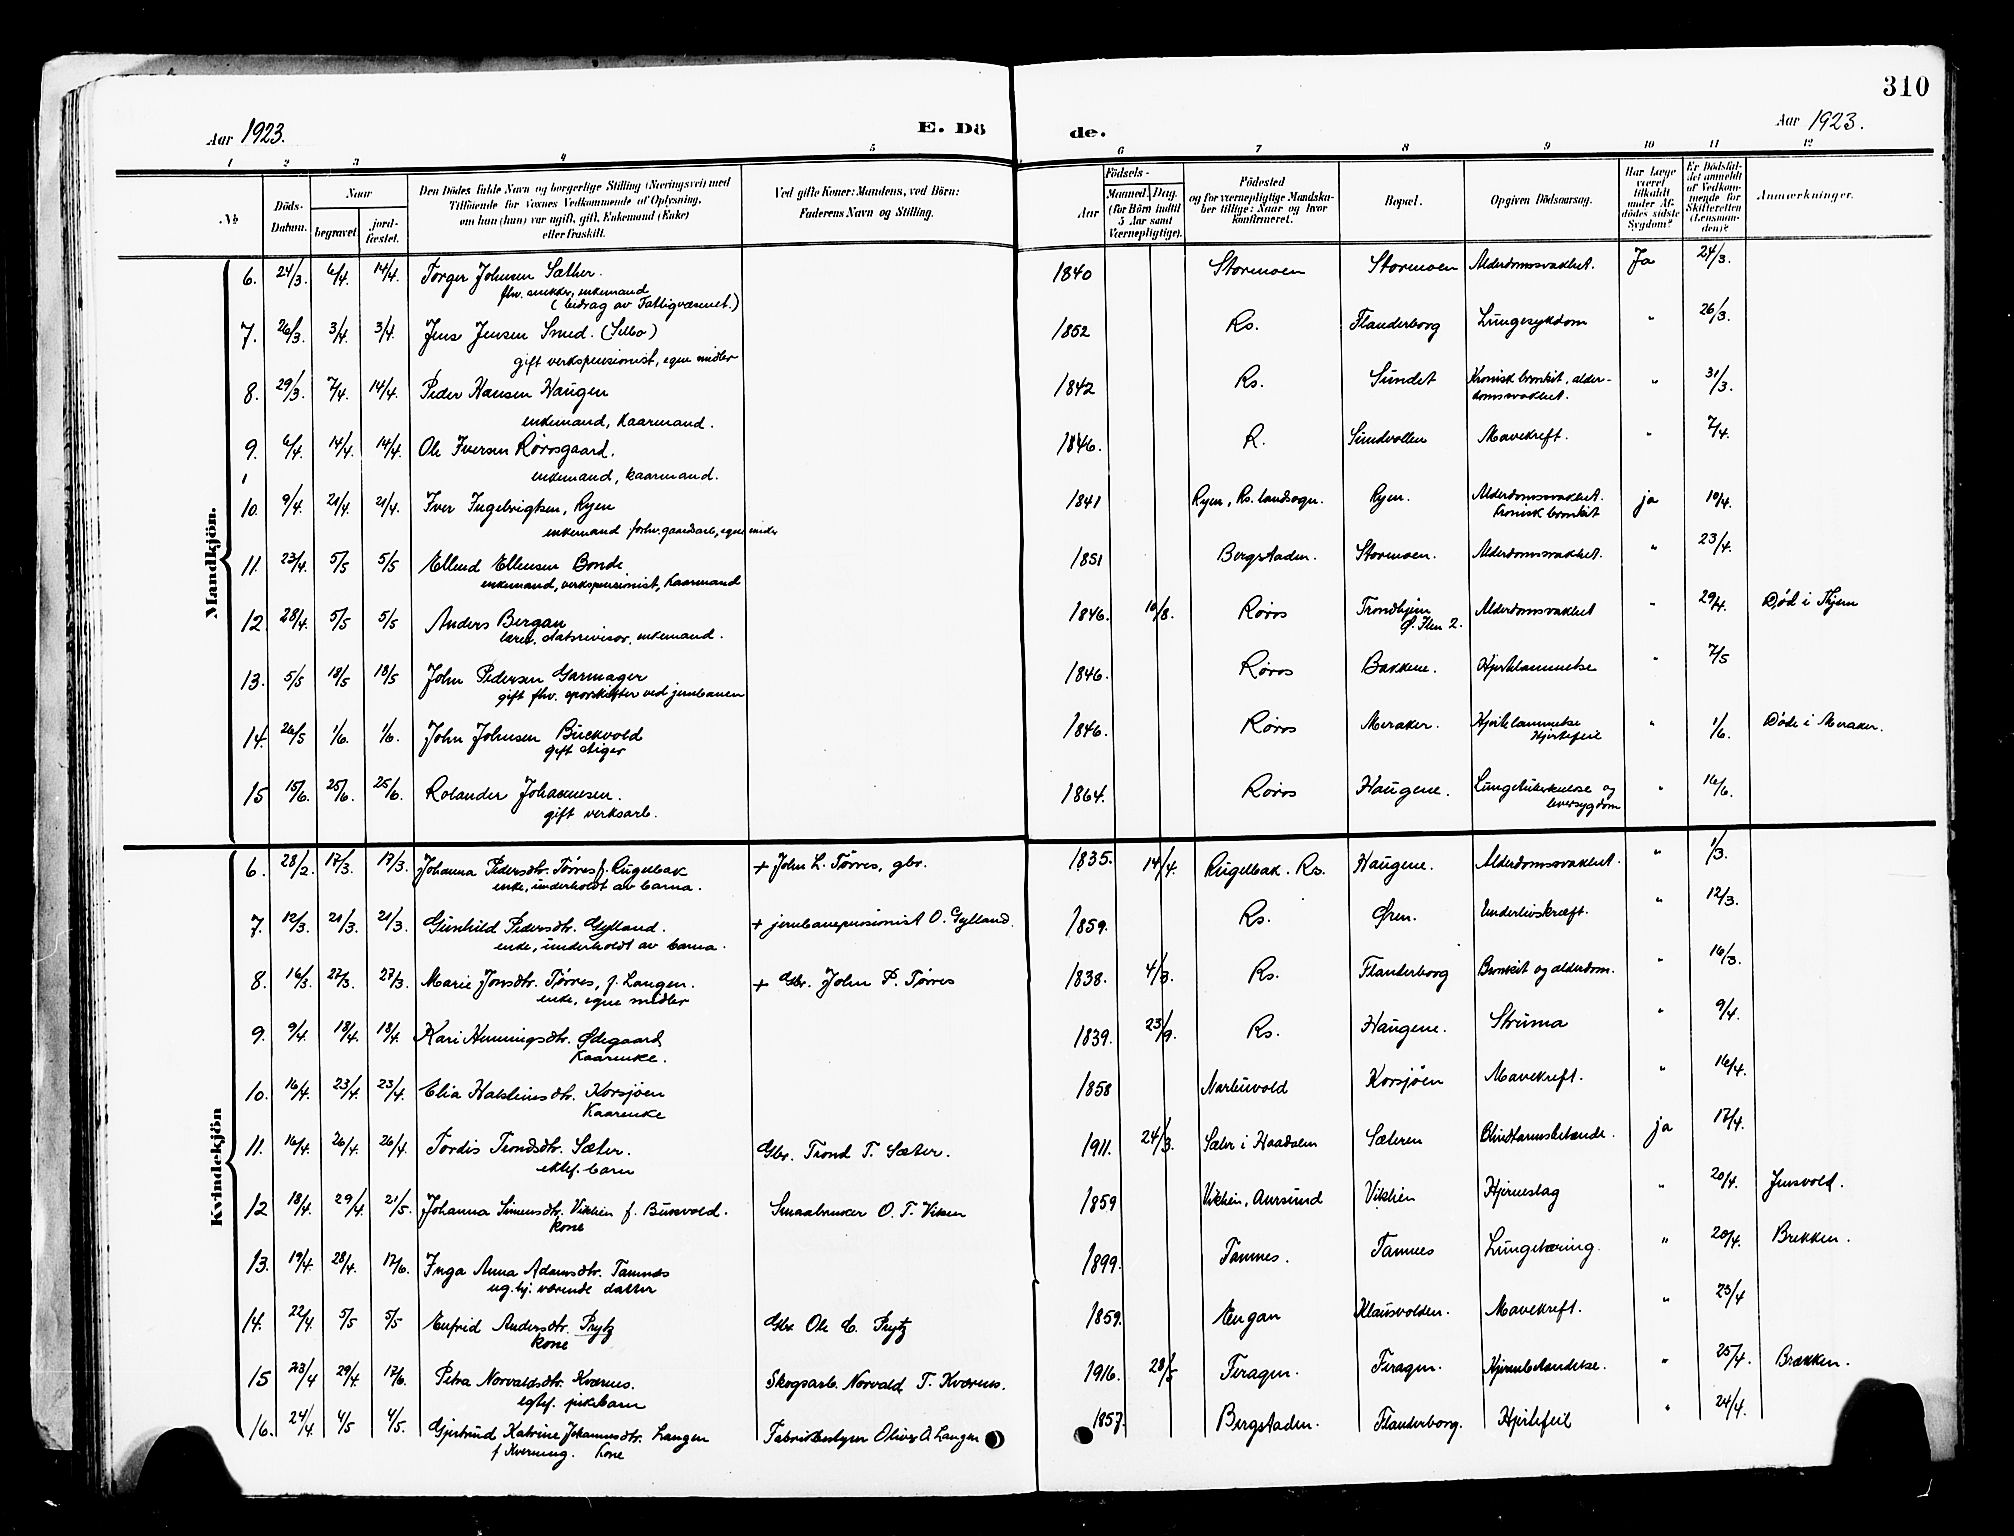 310
Aar 1923.
E. Dö
de.
Aar 1923.
1 2 3 4 5 6 7 8 9 10 11 12
No
Döds-Datum.
Naar
begravet.
jord-fæstet.
Den Dödes fulde Navn og borgerlige Stilling (Næringsvei) med
Tilföiende for voxnes Vedkommende af Oplysning,
om han (hun) var ugift, gift, Enkemand (Enke)
eller fraskilt.
Ved gifte Koner: Mandens, ved Börn:
Faderens Navn og Stilling.
Födsels-
Aar
Maaned. Dag.
(for Börn indtil
5 Aar samt
Værnepligtige).
Födested
og for værnepligtige Mandska-
ber tillige: Naar og hvor
konfirmeret.
Bopæl.
Opgiven Dödsaarsag.
Har Læge
været
tilkaldt
under Af-
dödes sidste
Sygdom?
Er Dödsfal-
det anmeldt
af Vedkom-
mende for
Skifteretten
(Lensman-
den)?
Anmærkninger.
Mandkjön.
6. 24/3. 6/4. 14/4. Torger Johnsen Sæther. 1840 Stormoen Stormoen Alderdomssvakhet. Ja 24/3.
fhv. snekker, enkemand
(bidrag av Fattigvæsenet.)
7. 26/3. 3/4. 3/4. Jens Jensen Smed. (Selbo) 1852 Rs. Flanderborg Lungesykdom " 26/3.
gift verkspensionist, egne midler
8. 29/3. 7/4. 14/4. Peder Hansen Haugen 1842 Rs. Sundet Kronisk bronkit, alder-
domssvakhet. " 31/3.
enkemand, kaarmand.
9. 6/4. 14/4. 14/4. Ole Iversen Rørosgaard. 1846. R. Sundvollen Mavekreft. " 7/4.
enkemand, kaarmand.
10. 9/4. 21/4. 21/4. Iver Ingebrigtsen, Ryen 1841 Ryen, Rs. landsogn. Ryen. Alderdomssvakhet.
Kronisk bronkit ja 10/4.
enkemand forhv. gaardsarb., egne midler
11. 23/4. 5/5 5/5 Ellend Ellensen Bonde 1851 Bergstaden. Stormoen. Alderdomssvakhet. " 23/4.
enkemand, verkspensionist, kaarmand
12. 28/4. 5/5 5/5 Anders Bergan 1846. 10/8. Røros Trondhjem
Ø. Ilen 2. Alderdomssvakhet " 29/4. Død i Thjem
lærer, statsrevisor, enkemand.
13. 5/5 18/5 18/5 John Pedersen Garmager 1846. Røros Bakkene. Hjertelammelse " 7/5
gift fhv. sporskifter ved jernbanen
14. 26/5 1/6. 1/6. John Johnsen Buckvold 1846. Røros Meraker. Hjertelammelse
Hjertefeil " 1/6. Døde i Meraker.
gift stiger
15 15/6. 25/6. 25/6. Rolander Johannesen. 1864. Røros Haugene. Lungetuberkulose og
leversygdom " 16/6.
gift verksarb.
Kvindekjön
6. 28/2. 17/3. 17/3. Johanna Pedersdtr. Tørres f. Rugelbak + John L. Tørres, gbr. 1835. 14/4. Rugelbak. Rs. Haugene. Alderdomssvakhet. " 1/3.
enke, underholdt av barna.
7. 12/3. 21/3. 21/3. Gunhild Pedersdtr. Gylland. + jernbanepensionist O. Gylland. 1859. Rs. Øren. Underlivskræft. " 12/3.
enke, underholdt av barna.
8. 16/3. 27/3. 27/3. Marie Jonsdtr. Tørres, f. Langen. + Gbr. John P. Tørres 1838. 4/3. Rs. Flanderborg Bronkit og alderdom. " 16/3.
enke, egne midler
9. 9/4. 18/4. 18/4. Kari Henningsdtr. Ødegaard 1839. 23/9. Rs. Haugene. Struma " 9/4.
Kaarenke.
10. 16/4. 23/4. 23/4. Elia Halsteinsdtr. Korsjøen 1858 Narbuvold Korsjöen Mavekreft. " 16/4.
Kaarenke
11. 16/4. 26/4. 26/4. Tordis Trondsdtr. Sæter. Gbr. Trond T. Sæter. 1911. 24/3. Sæter i Haadalen Sæteren Blindtarmsbetænde. ja 17/4.
ektef. barn
12 18/4. 29/4. 21/5. Johanna Simensdtr. Vikhein f. Buksvold. Smaabruker O. T. Viken 1859 Vikhein, Aursund Vikhein Hjerneslag " 20/4. Jensvold.
kone
13. 19/4. 28/4. 17/6. Inga Anna Adamsdtr. Tamnes 1899. Tamnes. Tamnes Lungetæring. " 20/4. Brekken.
ug. hj. værende datter
14. 22/4. 5/5 5/5 Enfrid Andersdtr. Prytz Gbr. Ole C. Prytz 1859. Engan Klausvolden. Mavekreft. " 23/4
kone
15 23/4 29/4. 17/6. Petra Norvaldsdtr. Kværnes. Skogsarb. Norvald T. Kværnes. 1916. 28/5 Feragen. Feragen. Hjernebetændelse. " 25/4. Brækken.
egtef. pikebarn
16. 24/4 4/5 4/5. Gjertrud Katrine Johannesdtr. Langen Fabrikbestyrer Oliver A Langen 1857. Bergstaden. Flanderborg. Hjertefeil " 24/4.
f Kverning. Kone